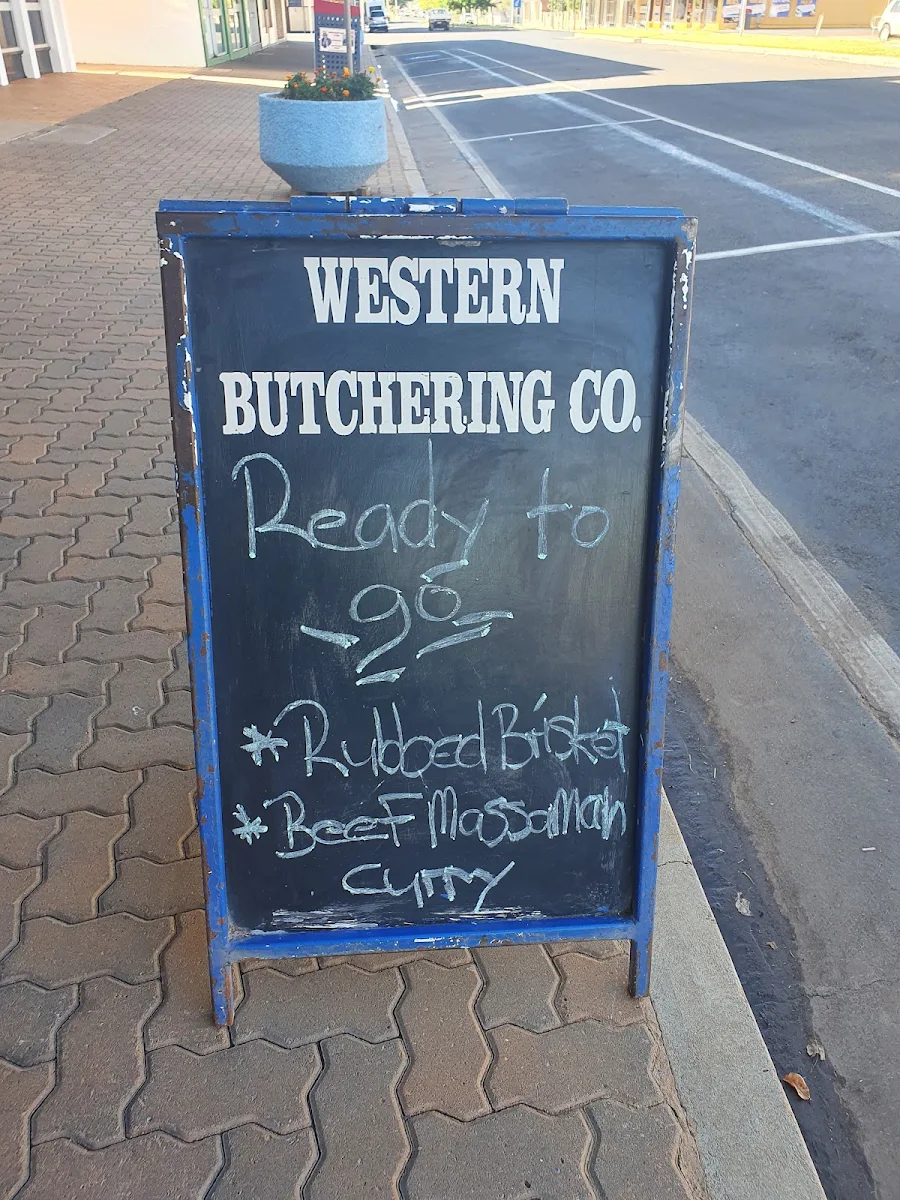 WESTERN
BUTCHERING CO.
Ready to
go
* Rubbed Brisket
* Beef Massaman
Curry